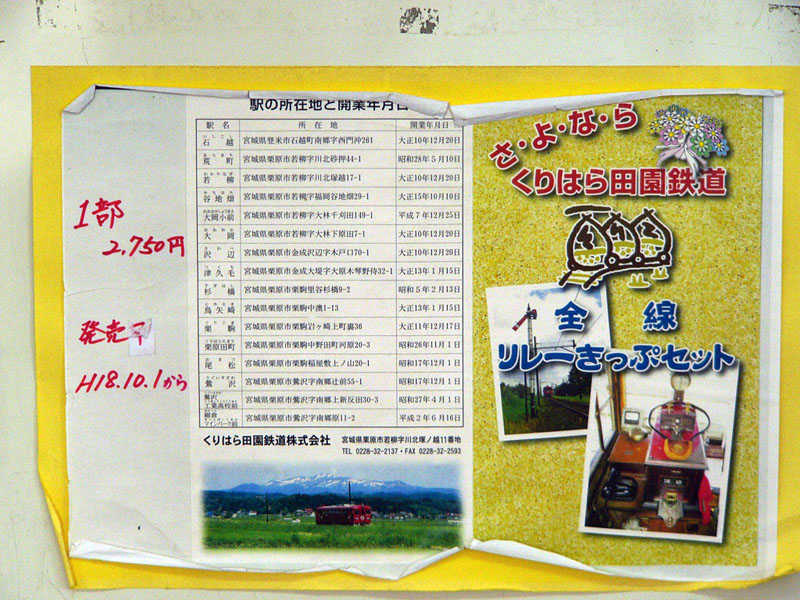 1部
2,750円
発売
H18.10.1から
駅の所在地と開業年月日
駅名 所在地 開業年月日
石越 宮城県登米市石越町南郷字西門沖261 大正10年12月20日
荒町 宮城県栗原市若柳字川北砂押44-1 昭和28年5月10日
若柳 宮城県栗原市若柳字川北塚越17-1 大正10年12月20日
谷地畑 宮城県栗原市若柳字福岡谷地畑29-1 大正15年10月10日
大岡小前 宮城県栗原市若柳字大林千刈田149-1 平成7年12月25日
大岡 宮城県栗原市若柳字大林下原田7-1 大正10年12月20日
沢辺 宮城県栗原市金成沢辺字木戸口70-1 大正10年12月20日
津久毛 宮城県栗原市金成大堤字大原木琴野待32-1 大正13年1月15日
杉橋 宮城県栗原市栗駒里谷杉橋9-2 昭和5年2月13日
鳥矢崎 宮城県栗原市栗駒中澳1-13 大正13年1月15日
栗駒 宮城県栗原市栗駒岩ヶ崎上町裏36 大正11年12月17日
栗原田町 宮城県栗原市栗駒中野田町河原20-3 昭和26年11月1日
尾松 宮城県栗原市栗駒稲屋敷上ノ山20-1 昭和17年12月1日
鶯沢 宮城県栗原市鶯沢字南郷辻前55-1 昭和17年12月1日
鶯沢工業高校前 宮城県栗原市鶯沢字南郷上新反田30-3 昭和27年4月1日
細倉マインパーク前 宮城県栗原市鶯沢字南郷原11-2 平成2年6月16日
くりはら田園鉄道株式会社 宮城県栗原市若柳字川北塚ノ越11番地
TEL 0228-32-2137・FAX 0228-32-2593
さ・よ・な・ら
くりはら田園鉄道
全線
リレーきっぷセット